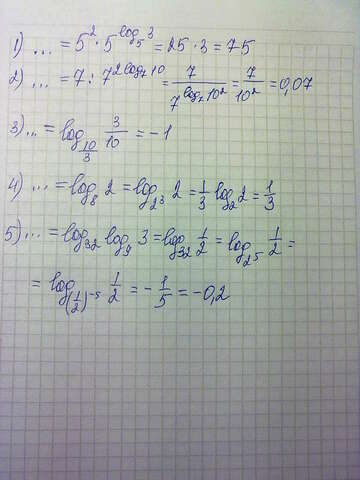 1) ... = 5² · 5^(log₅ 3) = 25 · 3 = 75
2) ... = 7 : 7^(2 log₇ 10) = 7/7^(log₇ 10²) = 7/10² = 0,07
3) ... = log_(10/3) 3/10 = -1
4) ... = log₈ 2 = log_(2³) 2 = 1/3 log₂ 2 = 1/3
5) ... = log₃₂ log₉ 3 = log₃₂ 1/2 = log_(2⁵) 1/2 =
= log_((1/2)⁻⁵) 1/2 = -1/5 = -0,2